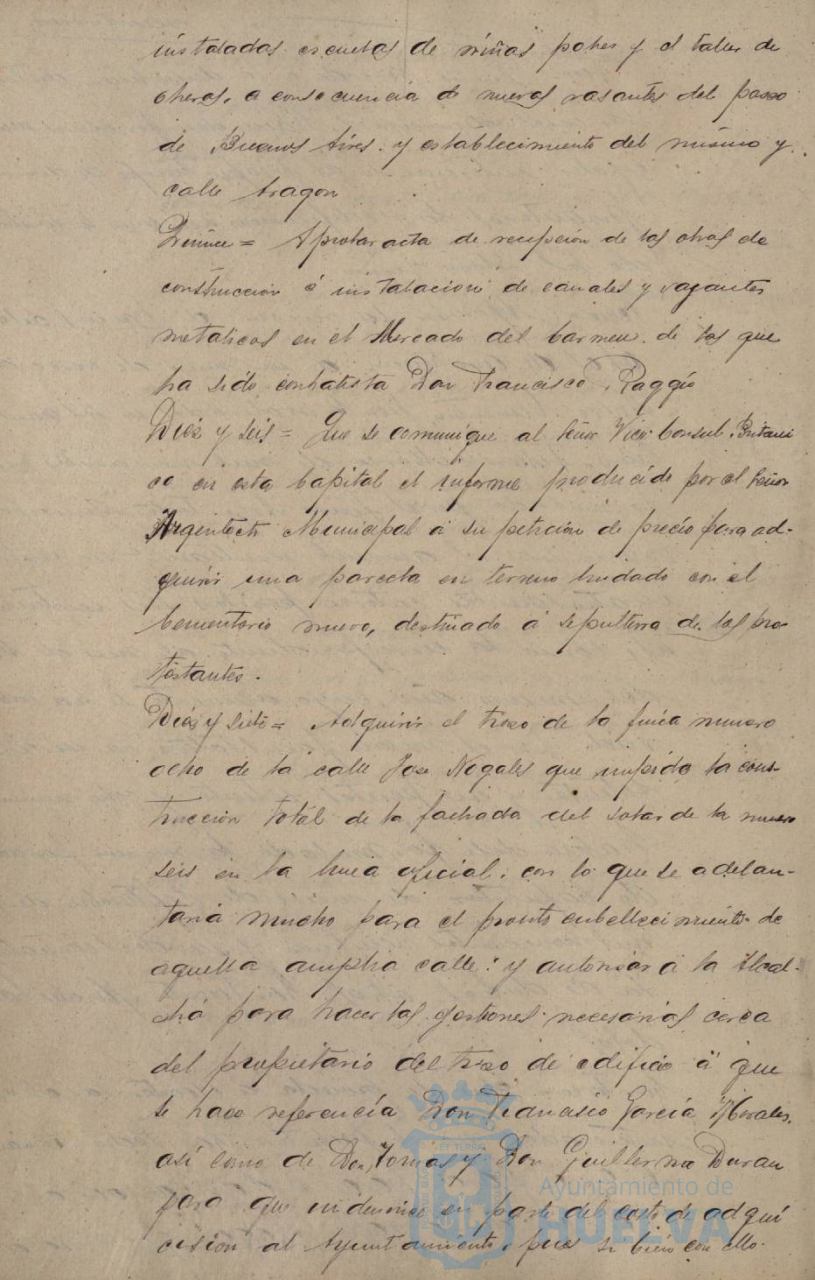 instaladas escuelas de niñas pobres y el taller de
obreras, a consecuencia de nuevas rasantes del paseo
de Buenos Aires. y establecimiento del mismo y
calle Aragon
Quince = Aprobar acta de recepcion de las obras de
construccion é instalacion de canales y bajantes
metalicos en el Mercado del Carmen. de las que
ha sido contratista Don Francisco Raggio
Diez y seis = Que se comunique al Señor Vice Consul Britani
co en esta Capital el informe producido por el Señor
Arquitecto Municipal á su peticion de precio para ad-
quirir una parcela en terreno lindado con el
Cementerio nuevo, destinado á sepultura de los pro
testantes.
Diez y siete = Adquirir el trozo de la finca numero
ocho de la calle Jose Nogales que impide la cons-
truccion total de la fachada del solar de la numero
seis en la linea oficial. con lo que se adelan-
taria mucho para el pronto embellecimiento de
aquella amplia calle: y autorizar á la Alcal-
dia para hacer las gestiones necesarias cerca
del propietario del trozo de edificio á que
se hace referencia Don Francisco García Morales.
así como de Don Tomas y Don Guillermo Duran
para que indemnice en parte del costo de adqui
cision al Ayuntamiento, pues si bien con ello
Ayuntamiento de
HUELVA